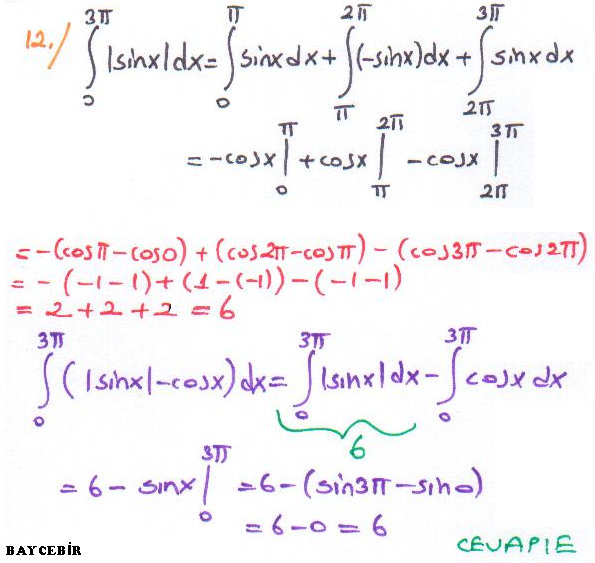 12./ ∫₀^{3π} |sinx| dx = ∫₀^{π} sinx dx + ∫_{π}^{2π} (-sinx) dx + ∫_{2π}^{3π} sinx dx
= -cosx |₀^{π} + cosx |_{π}^{2π} - cosx |_{2π}^{3π}
= -(cosπ - cos0) + (cos2π - cosπ) - (cos3π - cos2π)
= - (-1-1) + (1-(-1)) - (-1-1)
= 2 + 2 + 2 = 6
∫₀^{3π} (|sinx| - cosx) dx = ∫₀^{3π} |sinx| dx - ∫₀^{3π} cosx dx
6
= 6 - sinx |₀^{3π} = 6 - (sin3π - sin0)
= 6 - 0 = 6
CEVAP E
BAYCEBİR